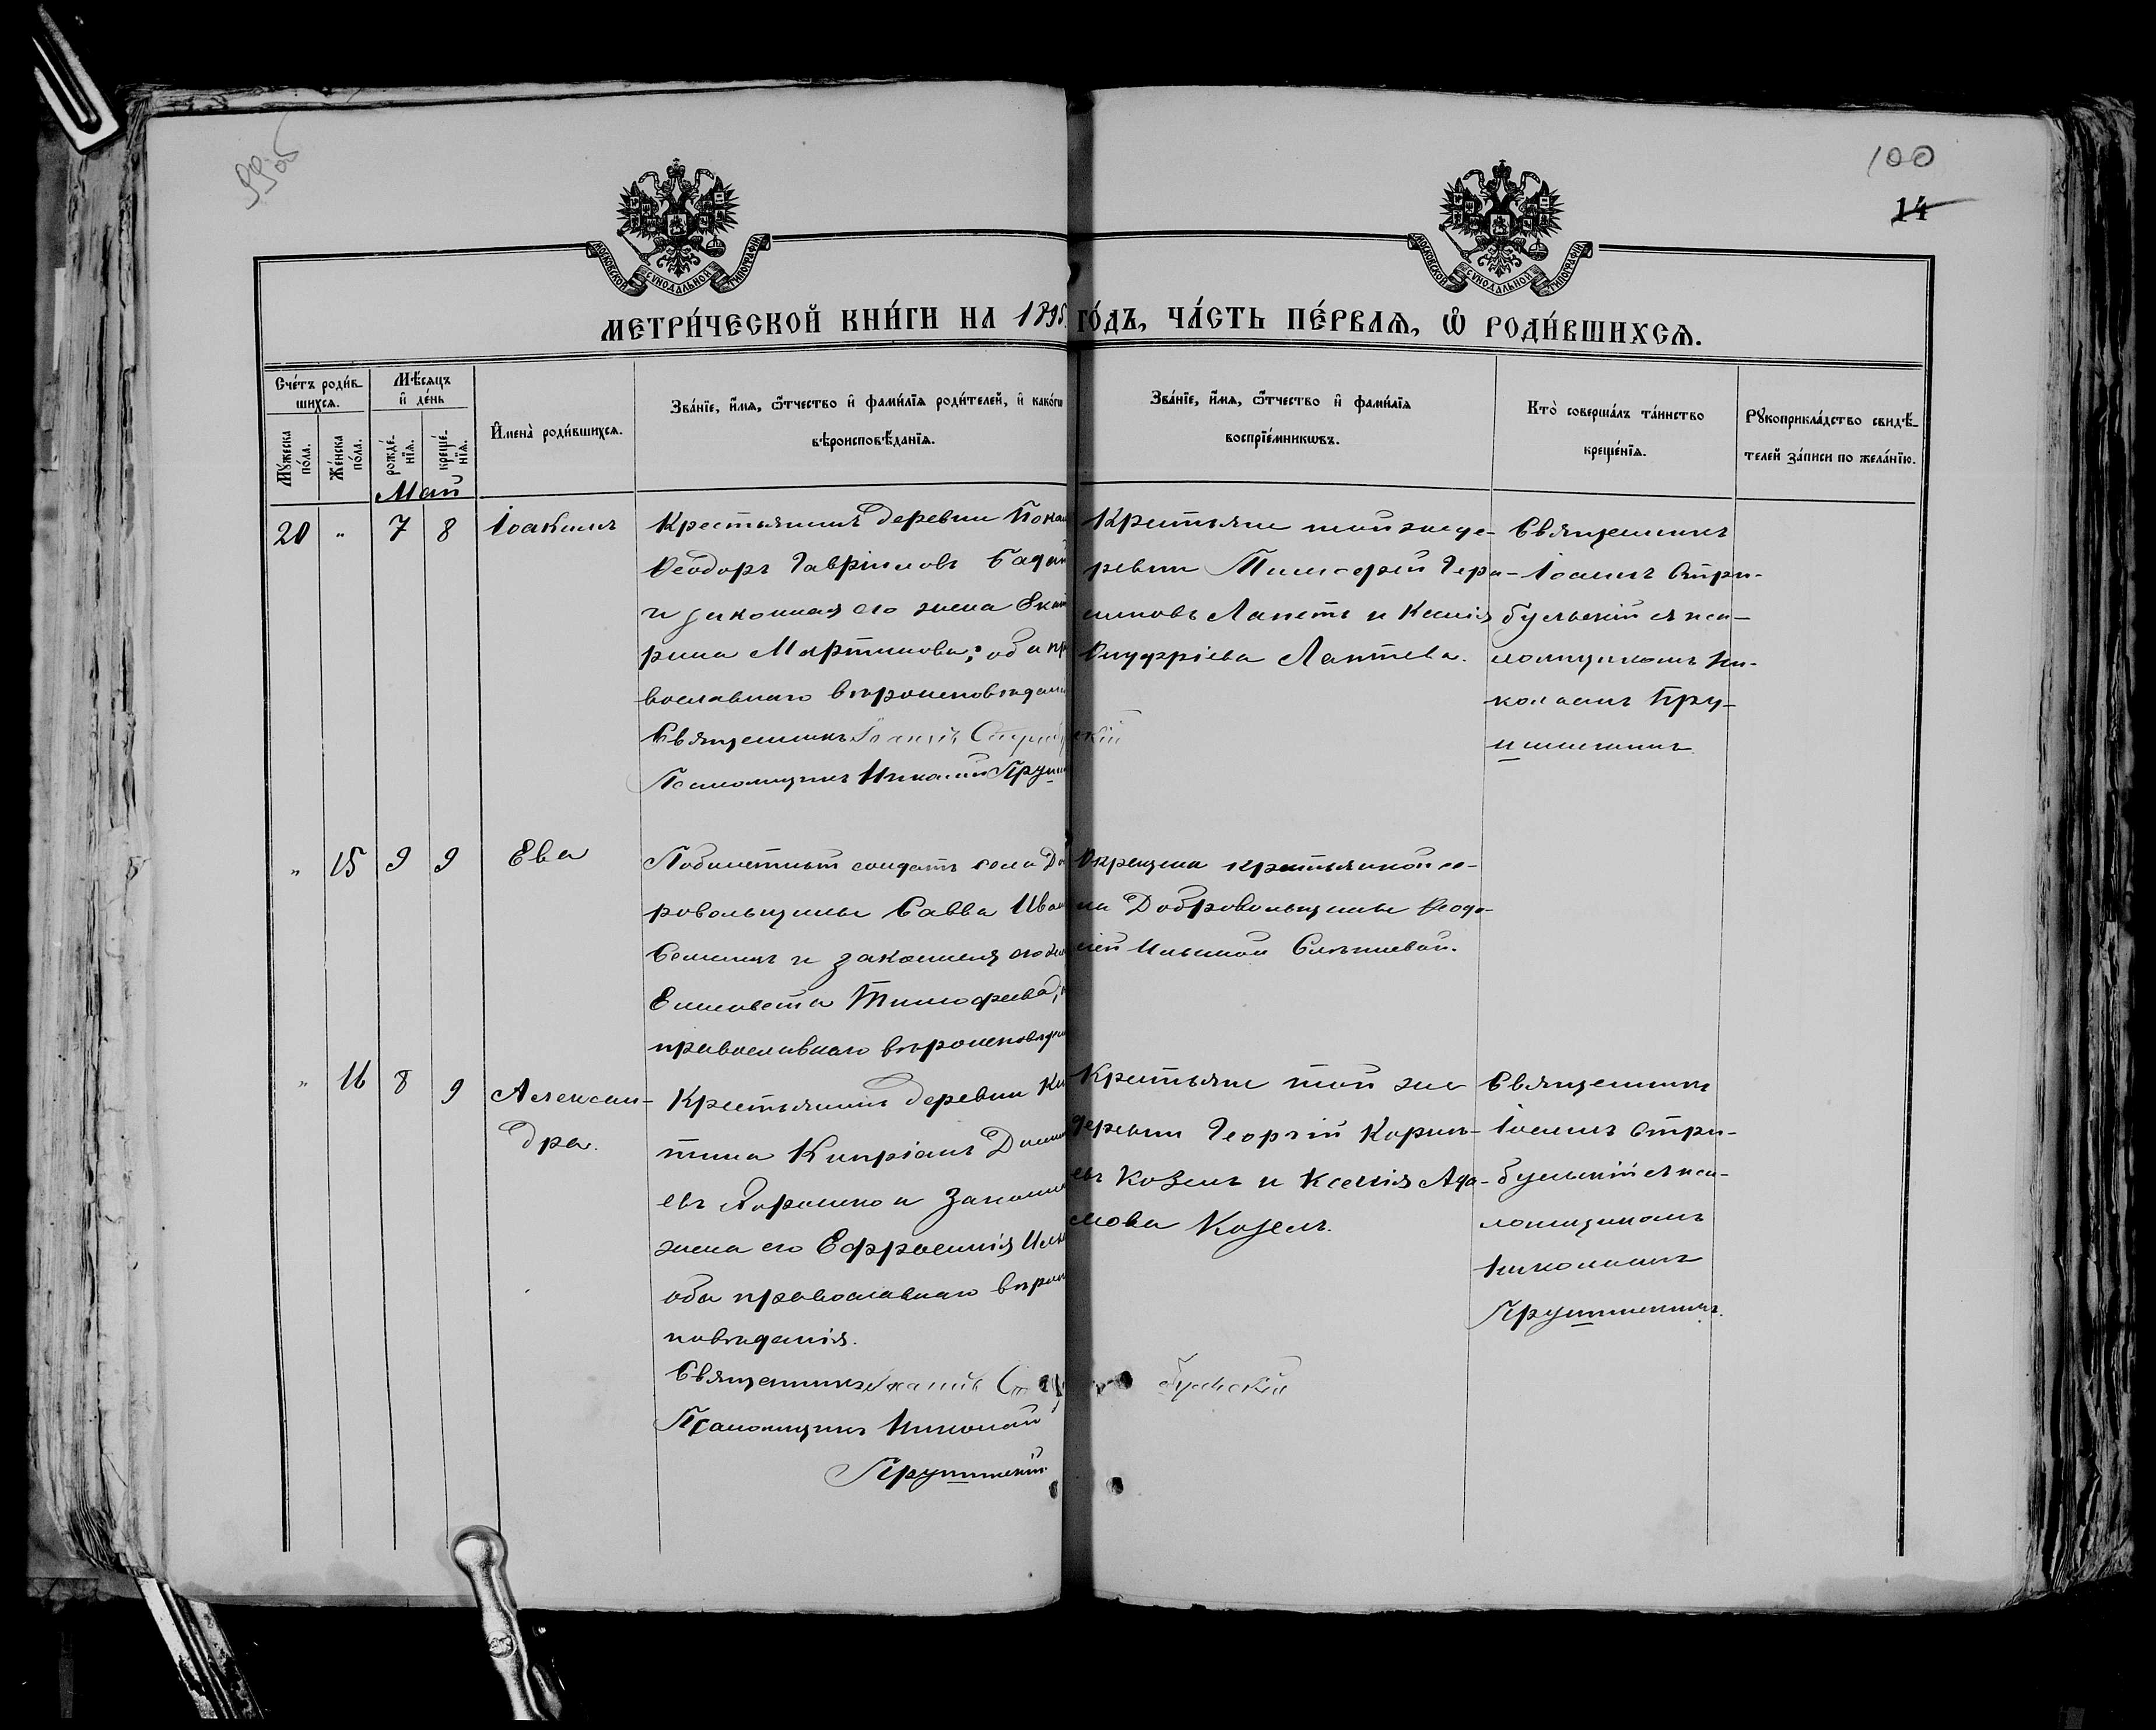 99об
100
14
МОСКОВСКОЙ СѴНОДАЛЬНОЙ ТИПОГРАФІИ
МОСКОВСКОЙ СѴНОДАЛЬНОЙ ТИПОГРАФІИ
МЕТРИ́ЧЕСКОЙ КНИ́ГИ НА 1895 ГО́ДЪ, ЧА́СТЬ ПЕ́РВАѦ, Ѡ҆ РОДИ́ВШИХСѦ.
Сче́тъ роди́в-
шихсѧ.
Мꙋ́жеска по́ла.
Же́нска по́ла.
Мѣ́сѧцъ
и҆ де́нь
рожде́-нїѧ.
креще́-нїѧ.
И҆мена̀ роди́вшихсѧ.
Зва́нїе, и҆́мѧ, ѻ҆́тчество и҆ фами́лїѧ роди́телей, и҆ како́гѡ
вѣроисповѣ́данїѧ.
Зва́нїе, и҆́мѧ, ѻ҆́тчество и҆ фами́лїѧ
воспрїе́мникѡвъ.
Кто̀ соверша́лъ та́инство
креще́нїѧ.
Рꙋкоприкла́дство свидѣ́-
телей за́писи по жела́нїю.
Май
20 " 7 8
Іоакимъ
Крестьянинъ деревни
Ѳеодоръ Гавріиловъ
и законная его жена Екат
рина Мартинова; оба пр
вославнаго вѣроисповѣдані
Священникъ Іоаннъ Стрибу
Псаломщикъ Николай Пру
Крестьяне той же де-
ревни Тимофей Гера-
симовъ Лапеть и Ксенія
Онуфріева Лаптева.
скій
Священникъ
Іоаннъ Стри-
бульскій съ пса-
ломщикомъ Ни-
колаемъ Пру-
" 15 9 9
Ева
солдатъ села До
ровольщины Савва Иван
и законная его жен
Елисавета Тимофеева,
православнаго вѣроисповѣдан
Окрещена крестьянкой се-
ла Добровольщины Ѳеодо-
сіей Ильиной
" 16 8 9
Алексан-
дра.
Крестьянинъ деревни Ки
тина Кипріанъ
евъ и законна
жена его Ефросинія Иль
оба православнаго вѣрои
повѣданія.
Священникъ Іоаннъ Стри
Псаломщикъ Николай
Крестьяне той же
деревни Георгій
евъ Козелъ и Ксенія Ада-
мова Козелъ.
бульскій
Священникъ
Іоаннъ Стри-
бульскій съ пса-
ломщикомъ
Николаемъ